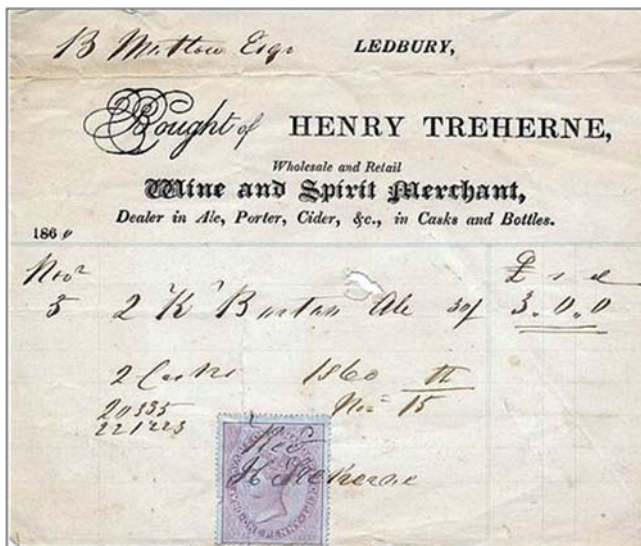 B Esqr LEDBURY,
Bought of HENRY TREHERNE,
Wholesale and Retail
Wine and Spirit Merchant,
Dealer in Ale, Porter, Cider, &c., in Casks and Bottles.
1860
Novr £ s d
5 2 K Burton Ale 30/ 3.0.0
2 Casks 1860
20335 Novr 15
221223
Recd
H Treherne